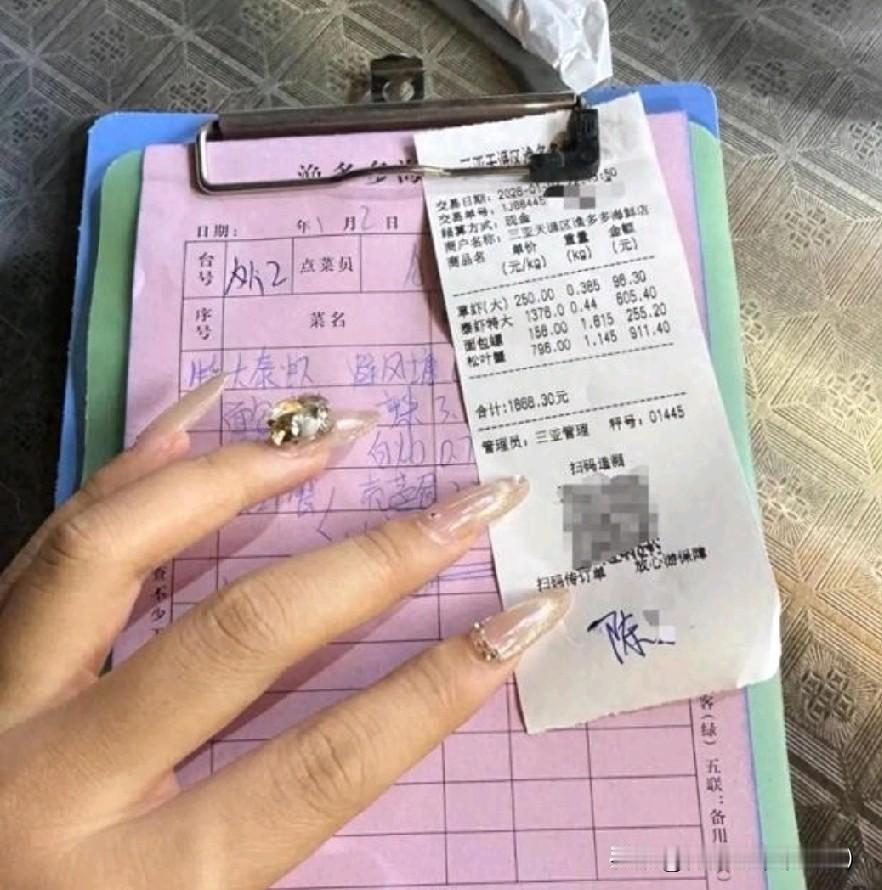 渔多多海
日期： 年1月2日
台号 外2 点菜员
序号 菜名
大泰虾 避风塘
三亚天涯区渔多多
交易日期：2026-01
交易单号：1J88445
结算方式：现金
商户名称：三亚天涯区渔多多海鲜店
商品名 单价(元/kg) 重量(kg) 金额(元)
草虾(大) 250.00 0.385 96.30
泰虾特大 1376.0 0.44 605.40
面包螺 158.00 1.615 255.20
松叶蟹 796.00 1.145 911.40
合计:1868.30元
管理员：三亚管理 秤号：01445
扫码追溯
扫码传订单 放心游保障
陈
查不少
客(绿) 五联：备用